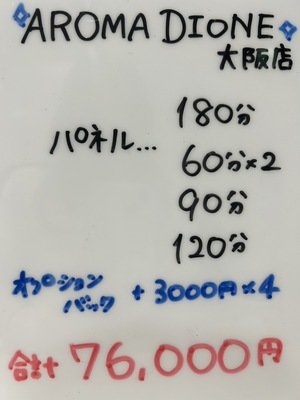 AROMA DIONE
大阪店
180分
パネル...
60分×2
90分
120分
オプション
バック + 3000円×4
合計 76,000円